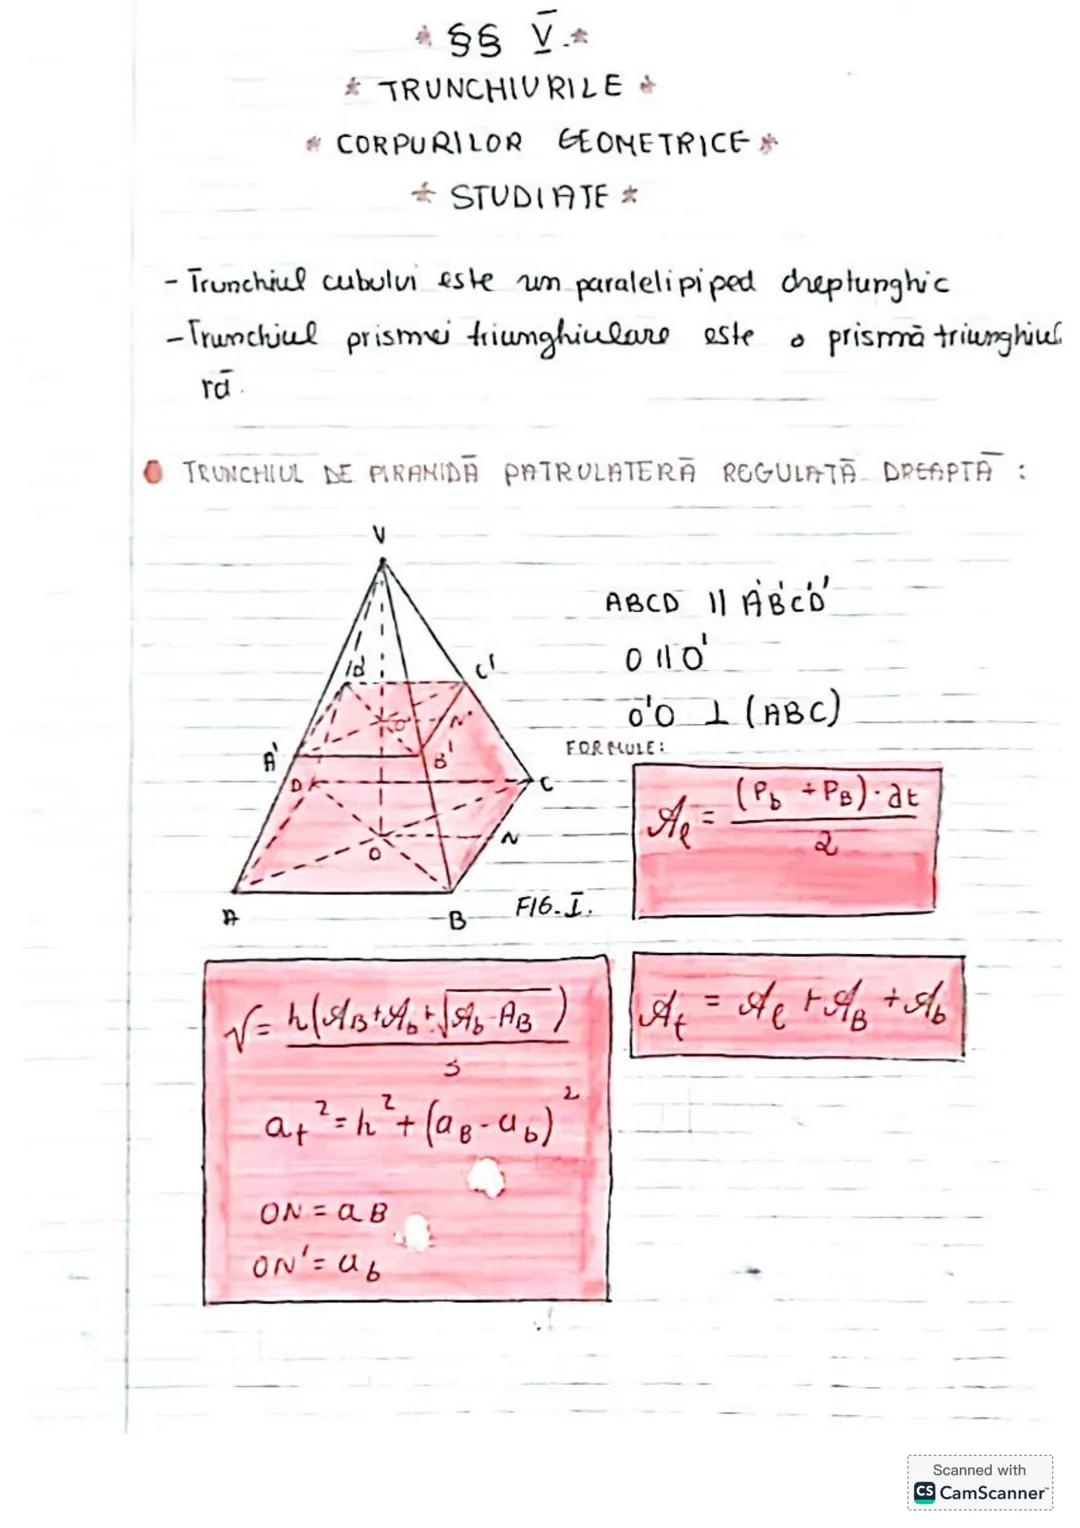 §§ V.
TRUNCHIURILE
CORPURILOR GEOMETRICE
STUDIATE
- Trunchiul cubului este un paralelipiped dreptunghic
- Trunchiul prismei triunghiulare este o prismă triunghiula
ră.
TRUNCHIUL DE PIRAMIDĂ PATRULATERĂ REGULATĂ DREAPTĂ :
V
ABCD || A'B'C'D'
O || O'
O'O ⊥ (ABC)
D' C'
O' N'
A' B'
D C
O N
A B
FIG. I.
FORMULE:
Aℓ = (Pb + PB) · at / 2
At = Aℓ + AB + Ab
V = h(AB + Ab + √(Ab · AB)) / 3
at² = h² + (aB - ab)²
ON = aB
ON' = ab
Scanned with
CS CamScanner